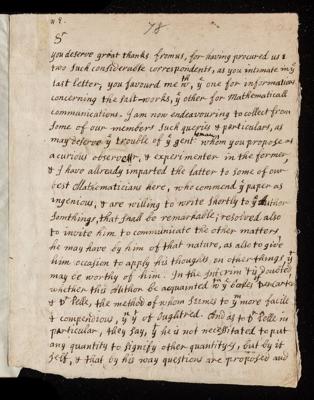 78
Sr
you deserve great thanks from us, for having procured us
two such considerable correspondents, as you intimate in ye
last letter, you favoured me wth, ye one for informations
concerning the salt-works, ye other for Mathematicall
communications. I am now endeavouring to collect from
some of our members such queries & particulars, as
may deserve ye trouble of ye gentleman whom you propose as
a curious observer, & experimenter in the former,
& I have allready imparted the latter to some of our
best Mathematicians here, who commend ye paper as
ingenious, & are willing to write shortly to ye Author
somthings, that shall be remarkable; resolved also
to invite him to communicate the other matters
he may have by him of that nature, as also to give
him occasion to apply his thoughts on other things, yt
may be worthy of him. In the interim
whether this Author be acquainted wth
& Dr Pelle, the method of whom seems to ym more facile
& compendious, yn yt of Oughtred. And as to Dr Pelle in
particular, they say, yt he is not necessitated to put
any quantity to signify other quantitys, but by it
self, & that by his way questions are proposed and